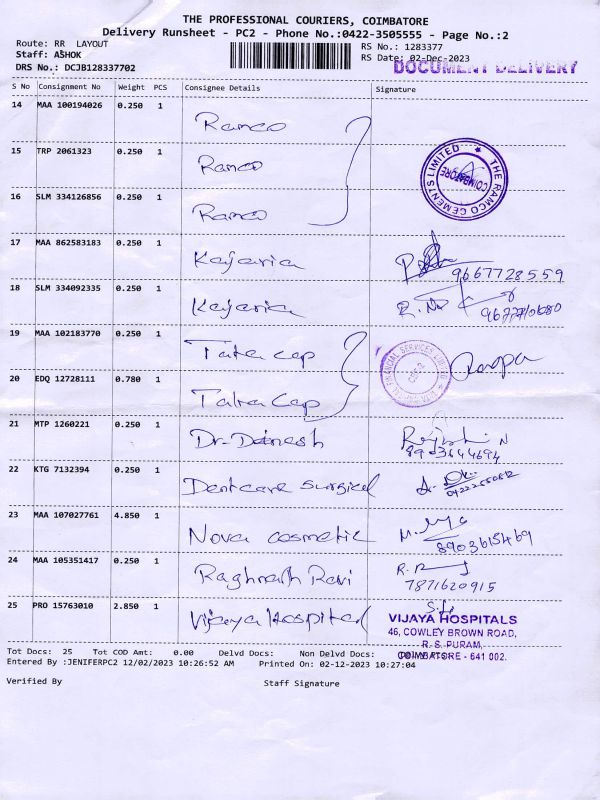 THE PROFESSIONAL COURIERS, COIMBATORE
Delivery Runsheet - PC2 - Phone No.:0422-3505555 - Page No.:2
Route: RR LAYOUT
RS No.: 1283377
Staff: ASHOK
RS Date: 02-Dec-2023
DRS No.: DCJB128337702
DOCUMENT DELIVERY
S No Consignment No Weight PCS Consignee Details Signature
14 MAA 100194026 0.250 1 Ramco
15 TRP 2061323 0.250 1 Ramco
THE RAMCO CEMENTS LIMITED ★ COIMBATORE
16 SLM 334126856 0.250 1 Ramco
17 MAA 862583183 0.250 1 Kajaria
9667728559
18 SLM 334092335 0.250 1 Kajaria
19 MAA 102183770 0.250 1 Tata cap
FINANCIAL SERVICES LIMITED
20 EDQ 12728111 0.780 1 Tata Cap
21 MTP 1260221 0.250 1 Dr. Dainesh
8903644694
22 KTG 7132394 0.250 1 Dentcare Surgical
23 MAA 107027761 4.850 1 Nova cosmetic
8903615469
24 MAA 105351417 0.250 1 Raghnath Ravi
7871620915
25 PRO 15763010 2.850 1 Vijaya Hospital
VIJAYA HOSPITALS
46, COWLEY BROWN ROAD,
R. S. PURAM,
COIMBATORE - 641 002.
Tot Docs: 25 Tot COD Amt: 0.00 Delvd Docs: Non Delvd Docs:
Entered By :JENIFERPC2 12/02/2023 10:26:52 AM Printed On: 02-12-2023 10:27:04
Verified By Staff Signature